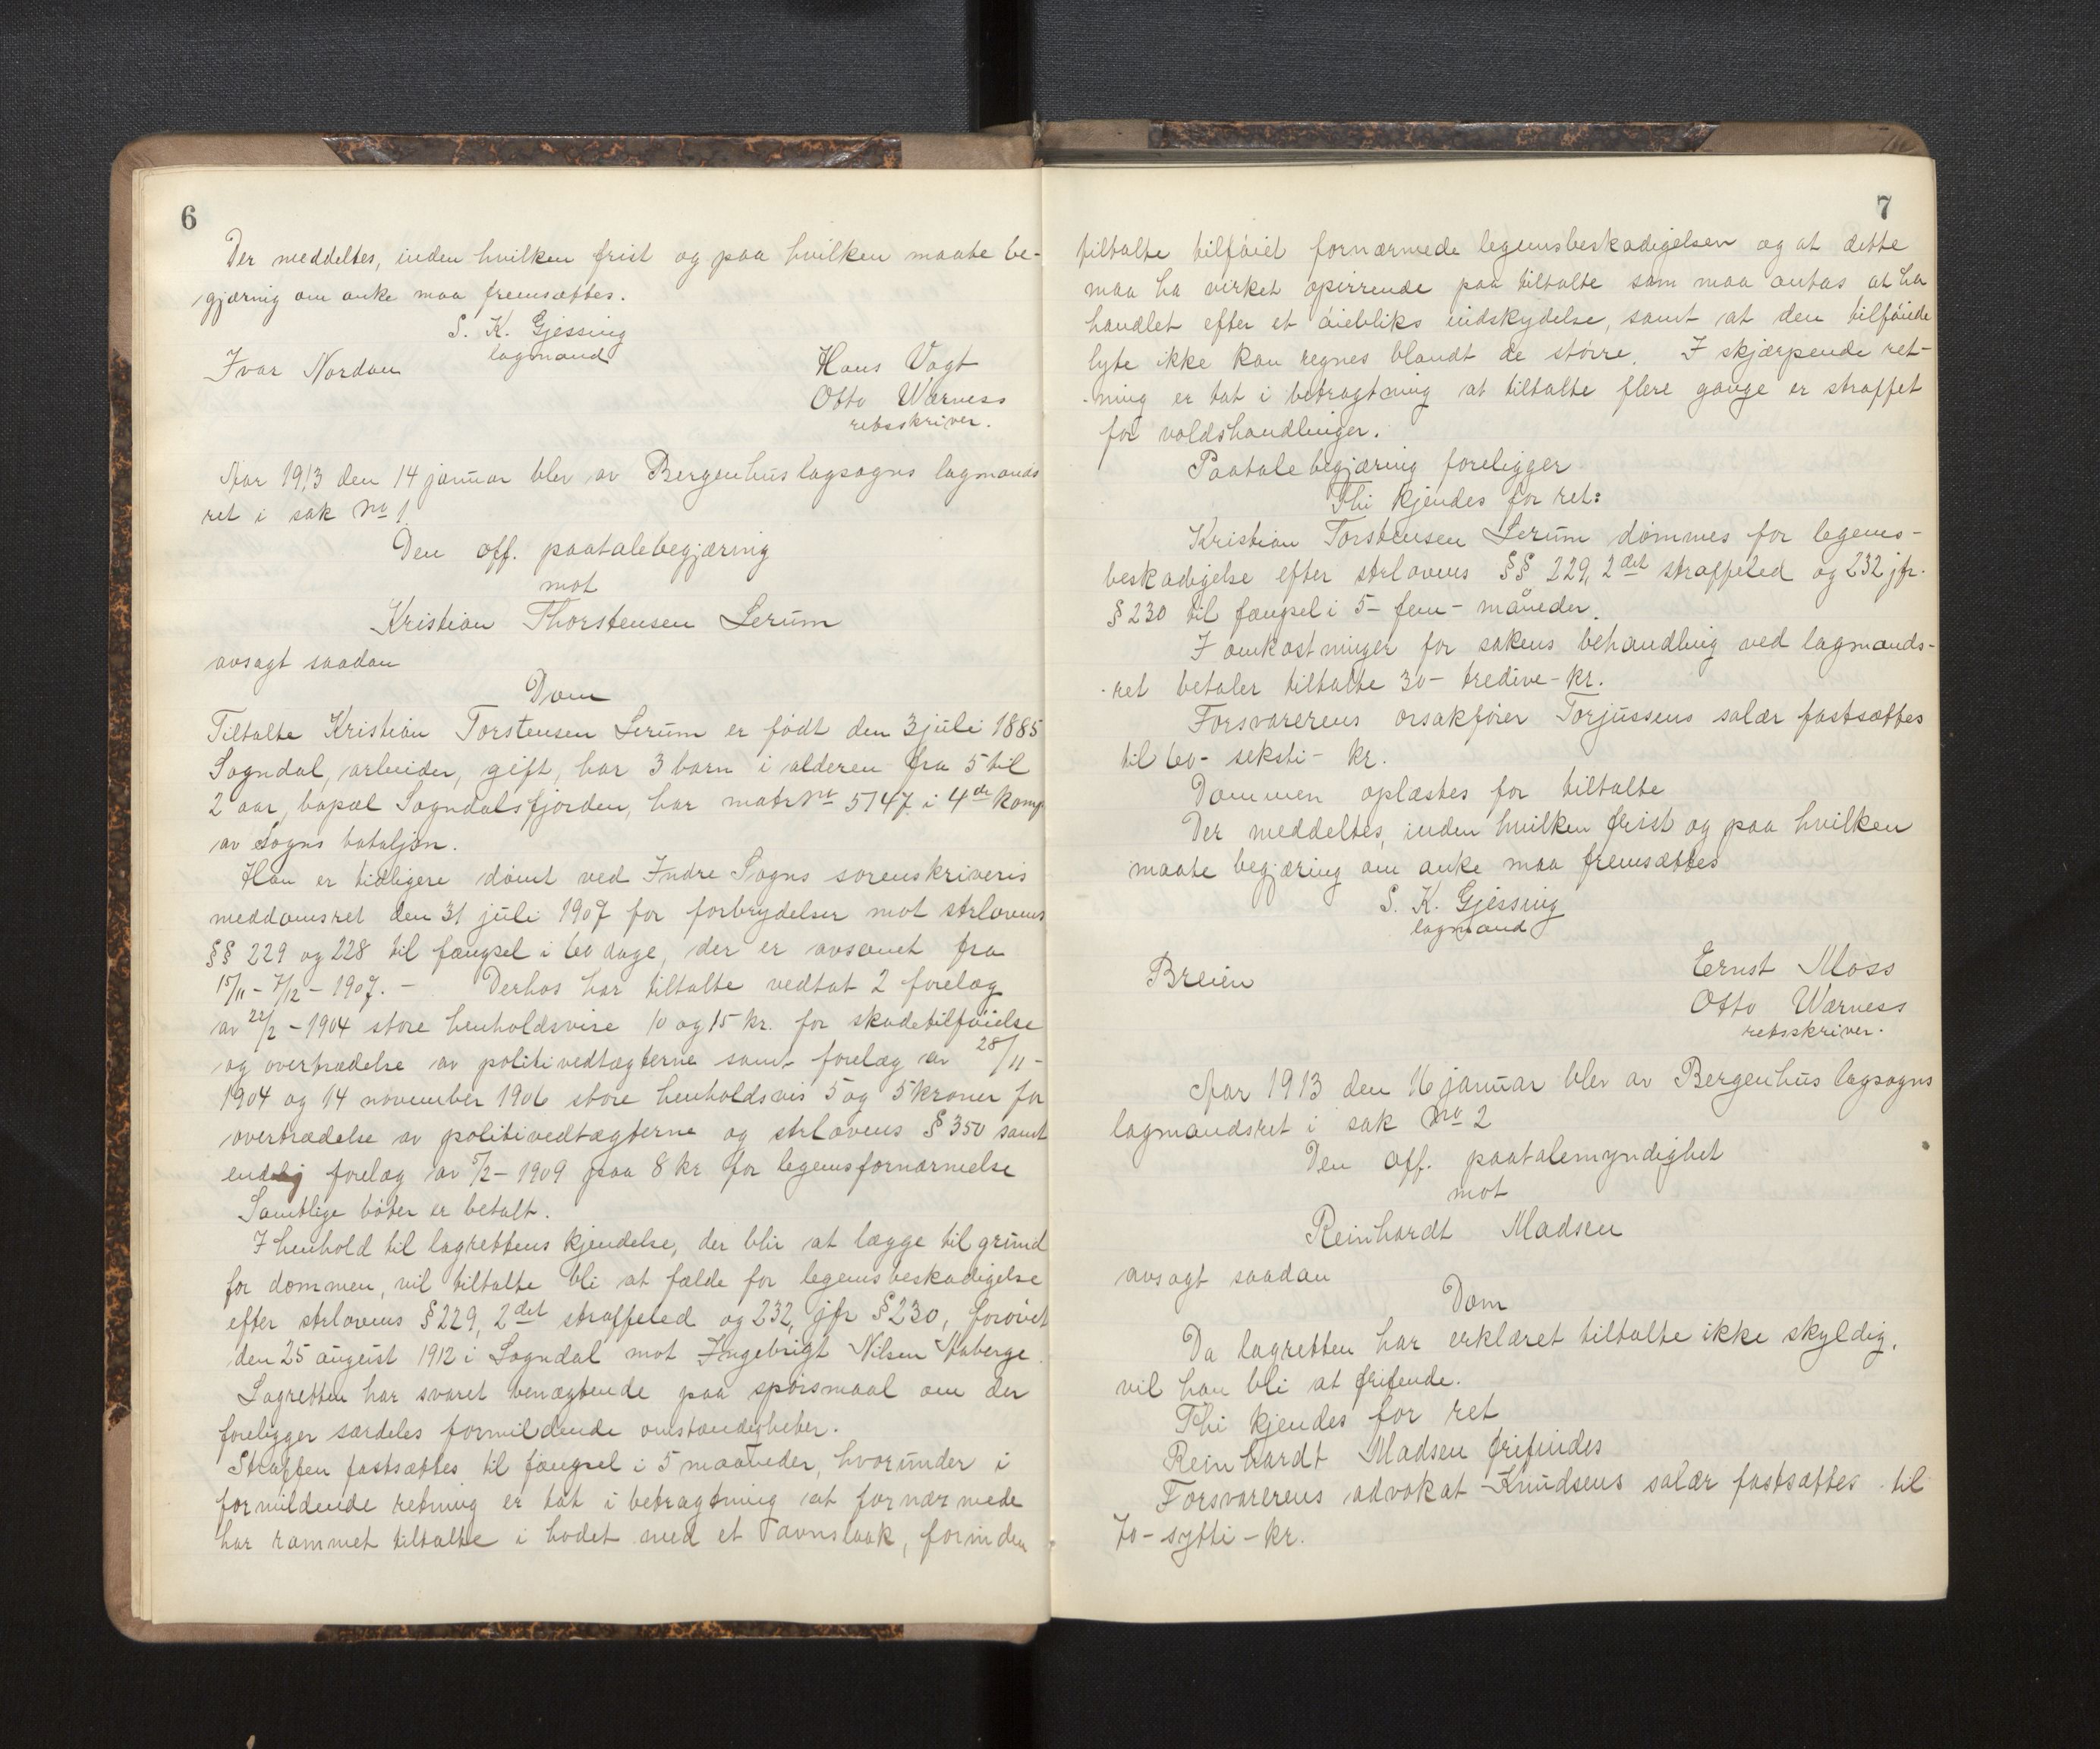 6
Der meddeltes, inden hvilken frist og paa hvilken maate be-
gjæring om anke maa fremsættes.
S. K. Gjessing
lagmand
Ivar Nordan
Hans Vogt
Otto Wærness
retsskriver.
Aar 1913 den 14 januar blev av Bergenhus lagsogns lagmands
ret i sak No 1
Den off. paatalebegjæring
mot
Kristian Thorstensen Lerum
avsagt saadan
Dom
Tiltalte Kristian Torstensen Lerum er født den 3 juli 1885
Sogndal, arbeider, gift, har 3 barn i alderen fra 5 til
2 aar, bopæl Sogndalsfjorden, har matr No 5147 i 4de komp
av Sogns bataljon.
Han er tidligere dømt ved Indre Sogns sorenskriveris
meddomsret den 31 juli 1907 for forbrydelser mot strlovens
§§ 229 og 228 til fængsel i 60 dage, der er avsonet fra
15/11 - 7/12 - 1907. - Derhos har tiltalte vedtat 2 forelæg
av 22/2 - 1904 store henholdsvise 10 og 15 kr. for skadetilføielse
og overtrædelse av politivedtægterne samt forelæg av 28/11 -
1904 og 14 november 1906 store henholdsvis 5 og 5 kroner for
overtrædelse av politivedtægterne og strlovens § 350 samt
endelig forelæg av 5/2 - 1909 paa 8 kr for legemsfornærmelse
Samtlige bøter er betalt.
I henhold til lagrettens kjendelse, der blir at lægge til grund
for dommen, vil tiltalte bli at fælde for legemsbeskadigelse
efter strlovens § 229, 2det straffeled og 232, jfr § 230, forøvet
den 25 august 1912 i Sogndal mot Ingebrigt Nilsen Staberge.
Lagretten har svaret benægtende paa spørsmaal om der
foreligger særdeles formildende omstændigheter.
Straffen fastsættes til fængsel i 5 maaneder, hvorunder i
formildende retning er tat i betragtning at fornærmede
har rammet tiltalte i hodet med et Tavnstaak, forinden
7
tiltalte tilføiet fornærmede legemsbeskadigelsen og at dette
maa ha virket opirrende paa tiltalte som maa antas at ha
handlet efter et øiebliks indskydelse, samt at den tilføiede
lyte ikke kan regnes blandt de større. I skjærpende ret-
ning er tat i betragtning at tiltalte flere gange er straffet
for voldshandlinger.
Paatalebegjæring foreligger
Thi kjendes for ret:
Kristian Torstensen Lerum dømmes for legems-
beskadigelse efter strlovens §§ 229, 2det straffeled og 232 jfr.
§ 230 til fængsel i 5 - fem - måneder.
I omkostninger for sakens behandling ved lagmands-
ret betaler tiltalte 30 - tredive - kr.
Forsvarerens orsakfører Torjussens salær fastsættes
til 60 - seksti - kr.
Dommen oplæstes for tiltalte
Der meddeltes, inden hvilken frist og paa hvilken
maate begjæring om anke maa fremsættes
S. K. Gjessing
lagmand
Breien
Ernst Moss
Otto Wærness
retsskriver.
Aar 1913 den 16 januar blev av Bergenhus lagsogns
lagmandsret i sak No 2
Den off. paatalemyndighet
mot
Reinhardt Madsen
avsagt saadan
Dom
Da lagretten har erklæret tiltalte ikke skyldig,
vil han bli at frifinde.
Thi kjendes for ret
Reinhardt Madsen frifindes
Forsvarerens advokat Knudsens salær fastsættes til
70 - sytti - kr.